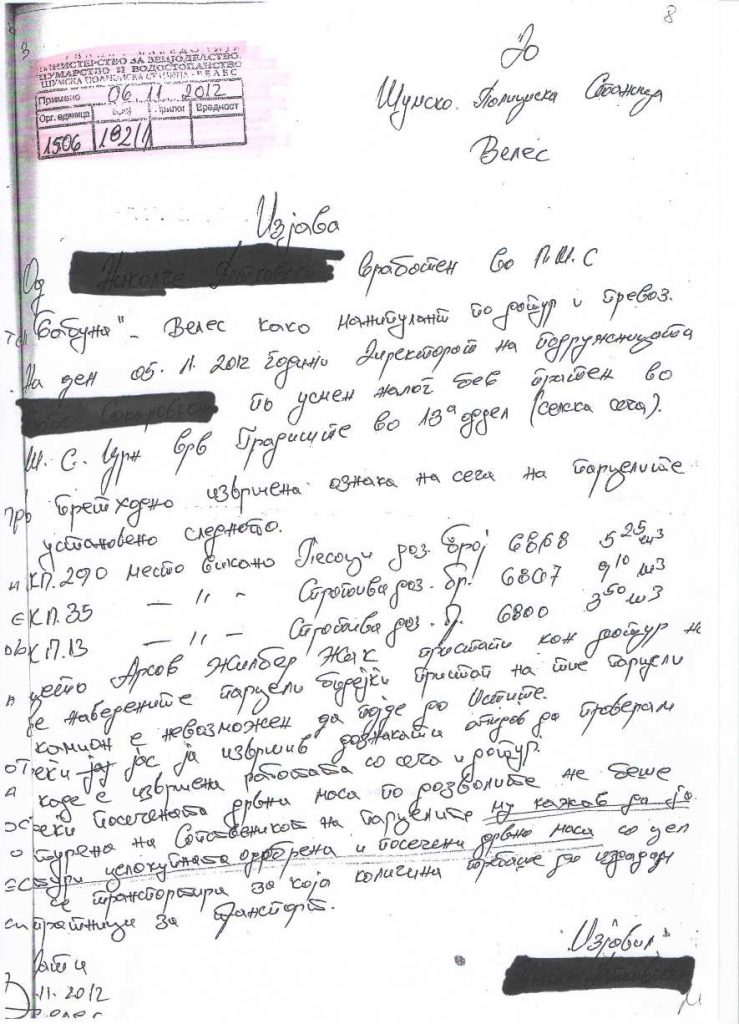 8
МИНИСТЕРСТВО ЗА ЗЕМЈОДЕЛСТВО,
ШУМАРСТВО И ВОДОСТОПАНСТВО
ШУМСКА ПОЛИЦИСКА СТАНИЦА - ВЕЛЕС
Примено 06. 11. 2012
Орг. единица Број Прилог Вредност
1506 182/1
До
Шумско. Полициска Станица
Велес
Изјава
Од вработен во П.Ш.С
"Бабуна" - Велес како манипулант по дотур и превоз.
На ден 05. 11. 2012 години Директорот на подружницата
по усмен налог бев пратен во
Ш. С. Црн врв Градиште во 13а оддел (селска сеча).
претходено извршена ознака на сеча на парцелите
установено следното.
КП. 290 место викано Песоци доз. број 6868 5 25 м3
КП. 35 — " — Стротива доз. бр. 6807 9 10 м3
КП. 13 — " — Стротива доз. бр. 6800 3 50 м3
лицето Арсов Жилбер Жак пристапи кон дотур
наберените парцели бидејќи пристап на тие парцели
камион е невозможен да појде до Истите.
јас ја извршив дознаката отидов да проверам
каде е извршена работата со сеча и дотур.
посечената дрвна маса по дозволите не беше
на Сопственикот на парцелите му кажав да ја
целокупната одобрена и посечена дрвно маса со цел
се транспортира за која количина требаше да издадам
за транспорт.
Изјавил
11. 2012